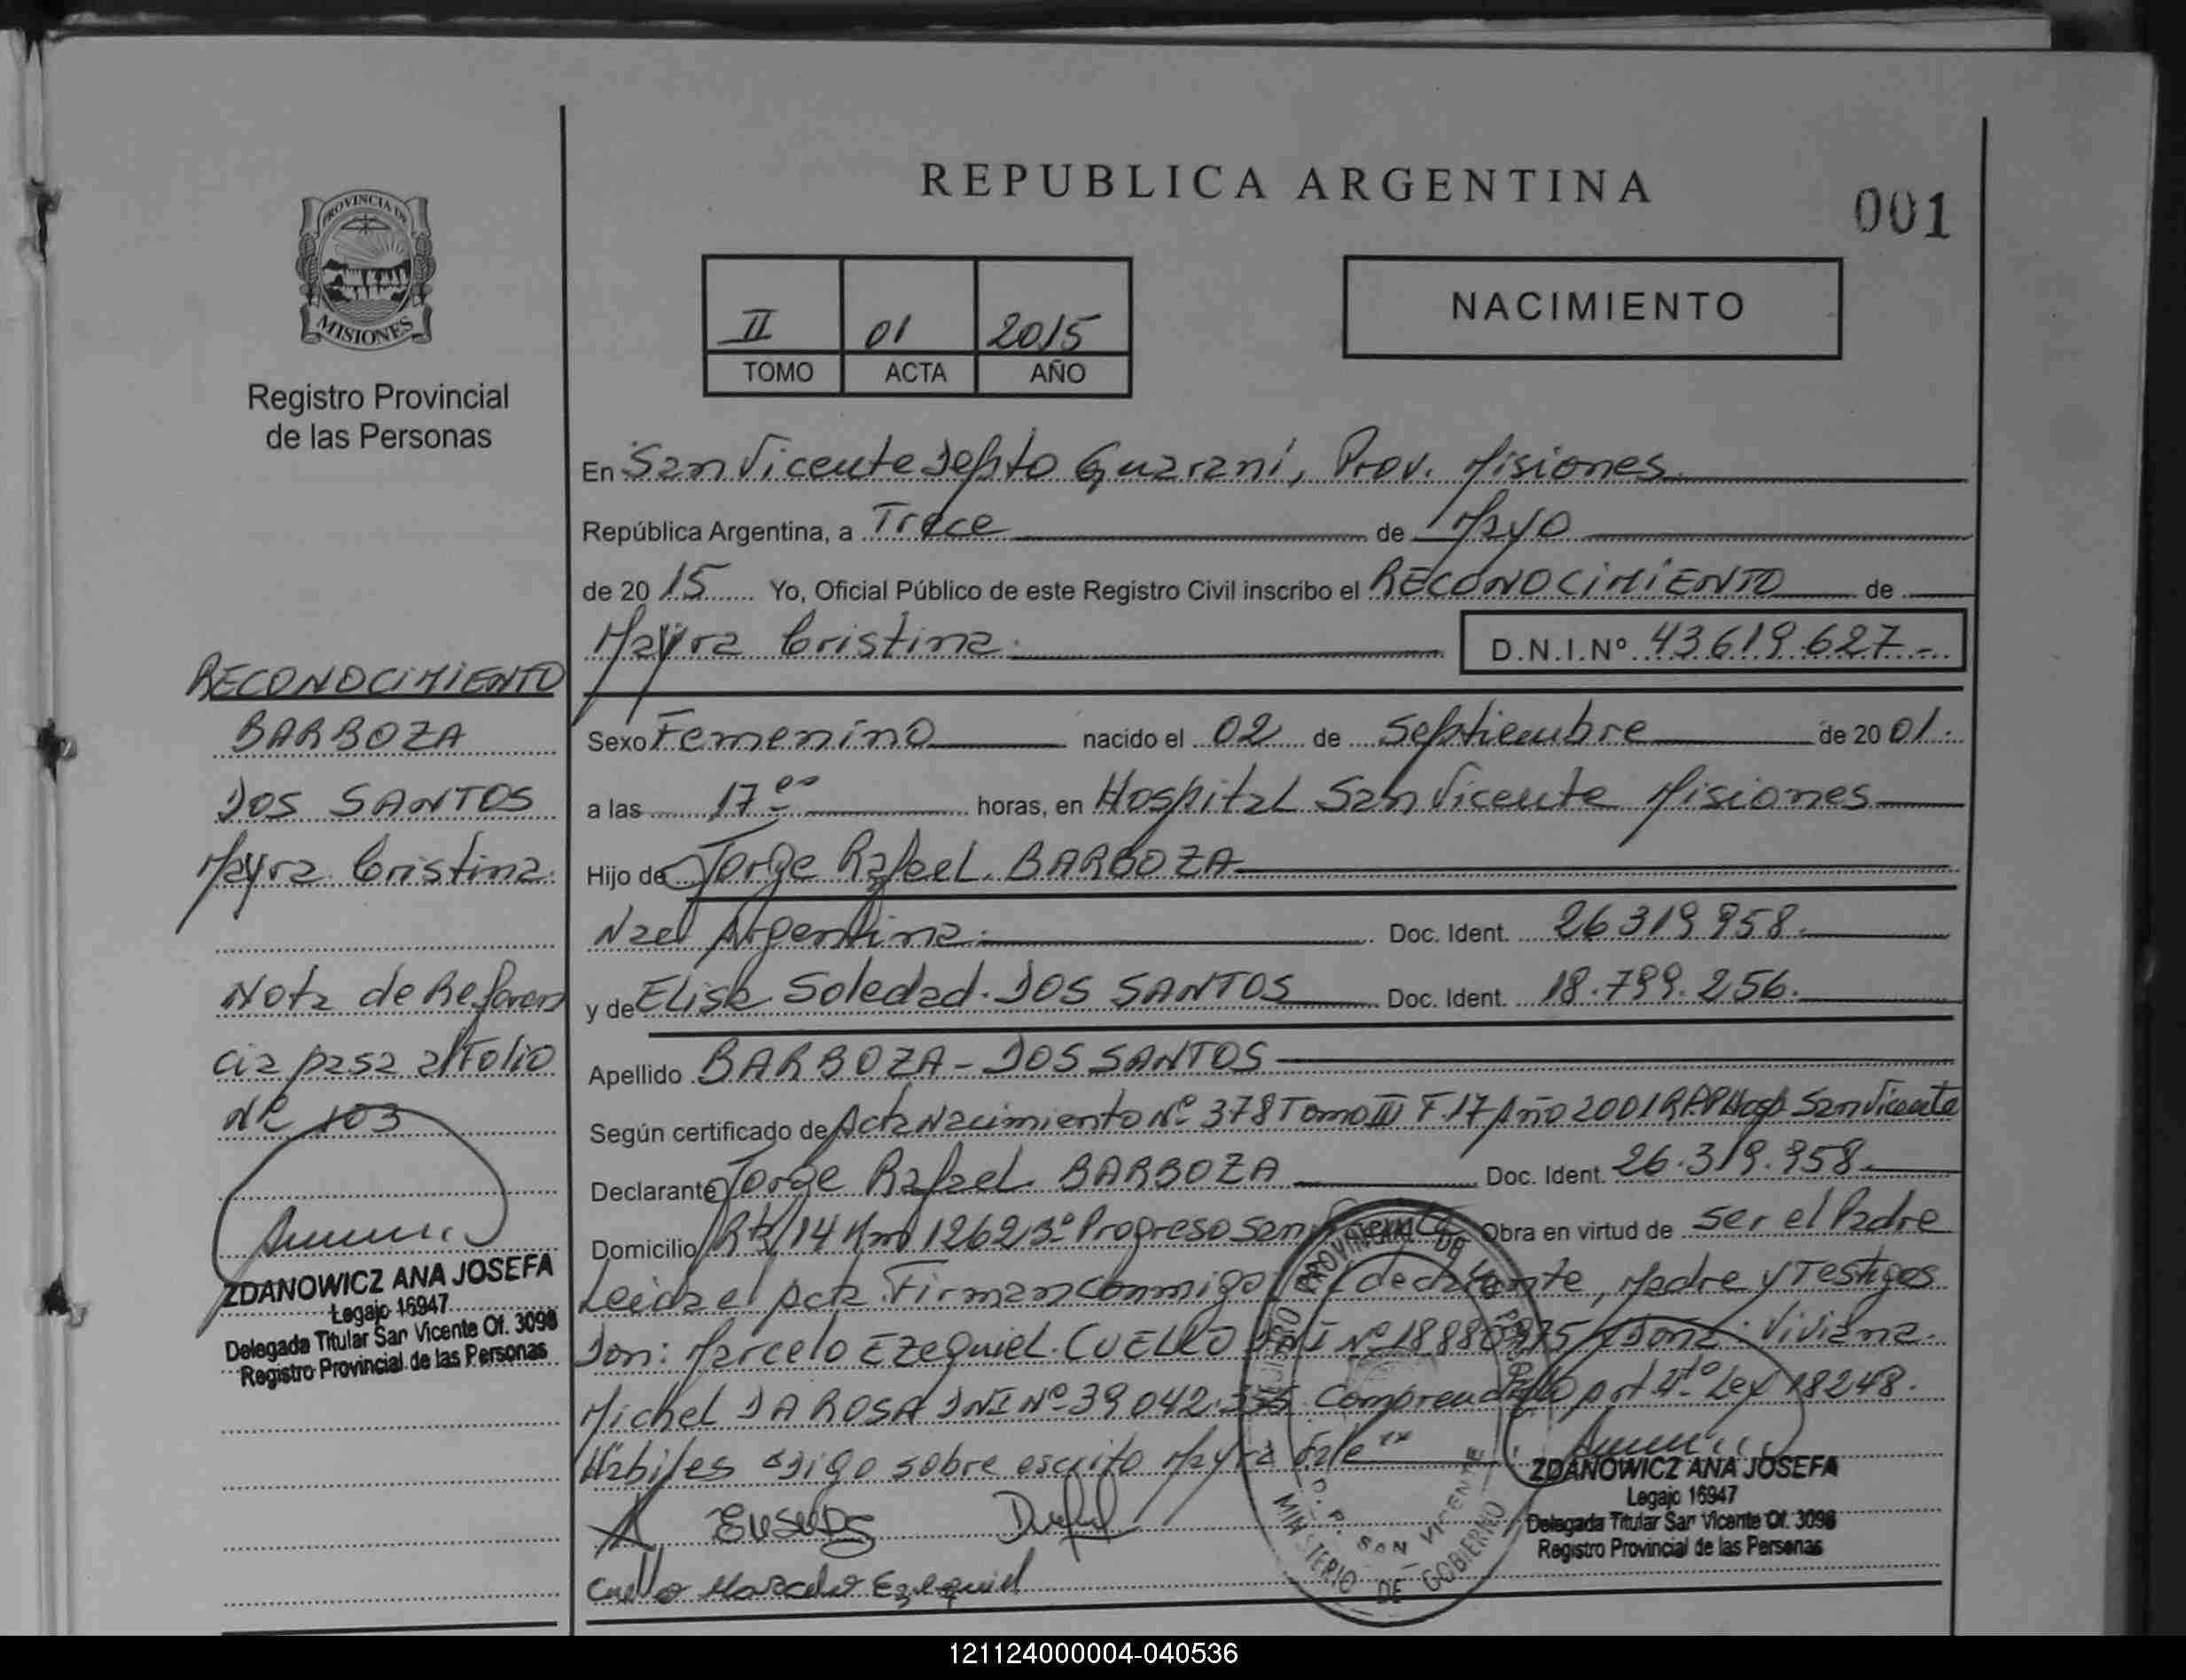 REPUBLICA ARGENTINA
001
PROVINCIA DE
MISIONES
Registro Provincial
de las Personas
II 01 2015
TOMO ACTA AÑO
NACIMIENTO
En San Vicente Depto Guaraní, Prov. Misiones
República Argentina, a Trece de Mayo
de 2015 Yo, Oficial Público de este Registro Civil inscribo el RECONOCIMIENTO de
Mayra Cristina. D.N.I.Nº 43619627-
Sexo Femenino nacido el 02 de Septiembre de 2001.
a las 17 00 horas, en Hospital San Vicente Misiones
Hijo de Jorge Rafael BARBOZA
Nael Argentina. Doc. Ident. 26319958.
y de Elisa Soledad DOS SANTOS Doc. Ident. 18.799.256.
Apellido BARBOZA - DOS SANTOS
Según certificado de Acta Nacimiento Nº 378 Tomo III F.17 Año 2001 R.P.P Hosp San Vicente
Declarante Jorge Rafael BARBOZA Doc. Ident. 26.319.958.
Domicilio Rta 14 Km 1262 Bº Progreso San Vicente Obra en virtud de Ser el Padre
Leida el Acta Firman conmigo el declarante, Madre y Testigos
Don: Marcelo Ezequiel CUELLO DNI Nº 18880975 y Doña: Viviana
Michel DA ROSA DNI Nº 39042.375 Comprendido art 4to Ley 18248.
Hábiles digo sobre escrito Mayra Vale
Cuello Marcelo Ezequiel
RECONOCIMIENTO
BARBOZA
DOS SANTOS
Mayra Cristina
Nota de Referen
cia pasa al Folio
Nº 103
ZDANOWICZ ANA JOSEFA
Legajo 16947
Delegada Titular San Vicente Of. 3098
Registro Provincial de las Personas
ZDANOWICZ ANA JOSEFA
Legajo 16947
Delegada Titular San Vicente Of. 3098
Registro Provincial de las Personas
PROVINCIAL DE
SAN VICENTE
MINISTERIO DE GOBIERNO
121124000004-040536